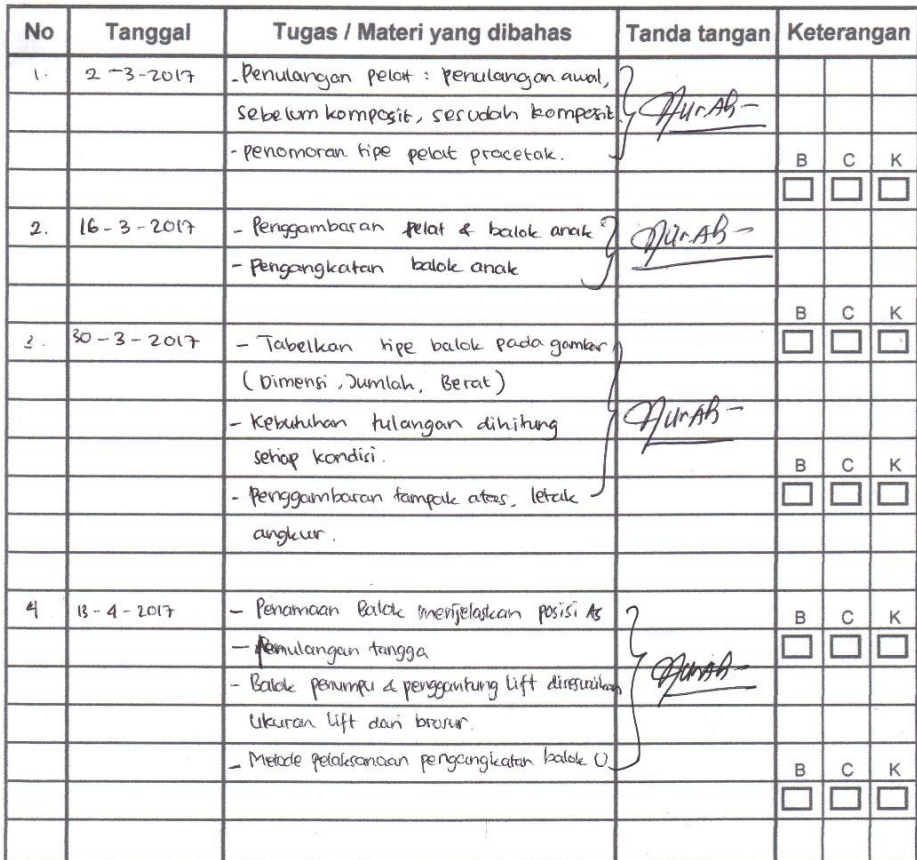 No Tanggal Tugas / Materi yang dibahas Tanda tangan Keterangan
1. 2-3-2017 - Penulangan pelat : penulangan awal,
sebelum komposit, sesudah komposit.
- penomoran tipe pelat pracetak.
B C K
2. 16-3-2017 - Penggambaran pelat & balok anak
- Pengangkatan balok anak
B C K
3. 30-3-2017 - Tabelkan tipe balok pada gambar
(Dimensi, Jumlah, Berat)
- Kebutuhan tulangan dihitung
setiap kondisi.
B C K
- Penggambaran tampak atas, letak
angkur.
4 13-4-2017 - Penamaan Balok menjelaskan posisi As
B C K
- Penulangan tangga
- Balok penumpu & penggantung lift disesuaikan
ukuran lift dari brosur.
- Metode pelaksanaan pengangkatan balok U
B C K